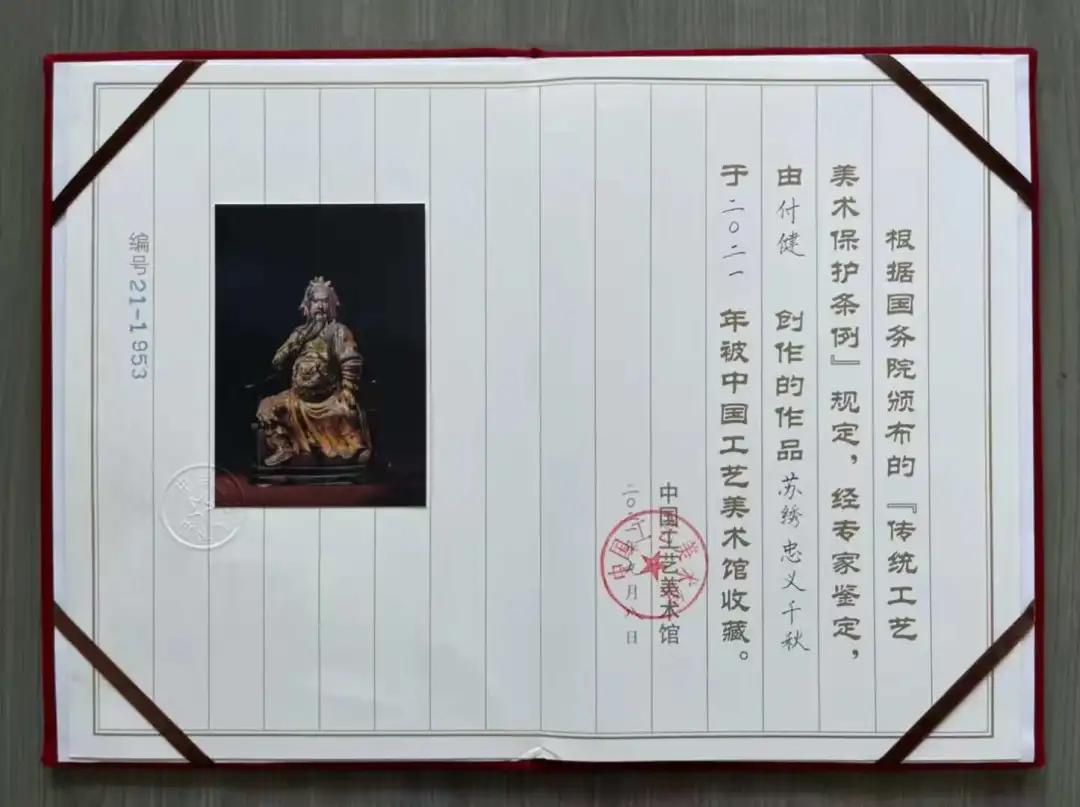 根据国务院颁布的『传统工艺
美术保护条例』规定，经专家鉴定，
由付健 创作的作品苏绣忠义千秋
于二〇二一 年被中国工艺美术馆收藏。
中国工艺美术馆
月八日
编号21-1953